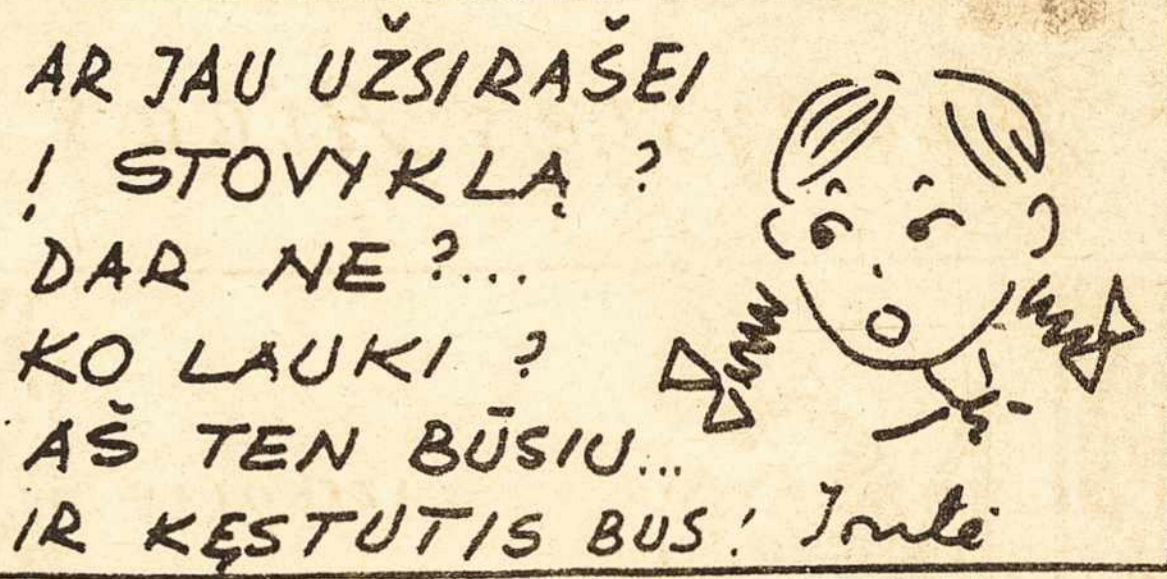 AR JAU UŽSIRAŠEI
Į STOVYKLĄ ?
DAR NE ?...
KO LAUKI ?
AŠ TEN BŪSIU...
IR KĘSTUTIS BUS!